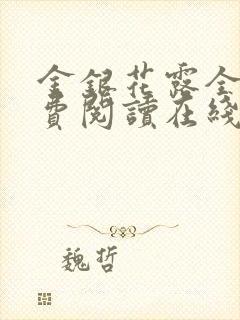 金銀花露全
費閱讀在綫
魏哲